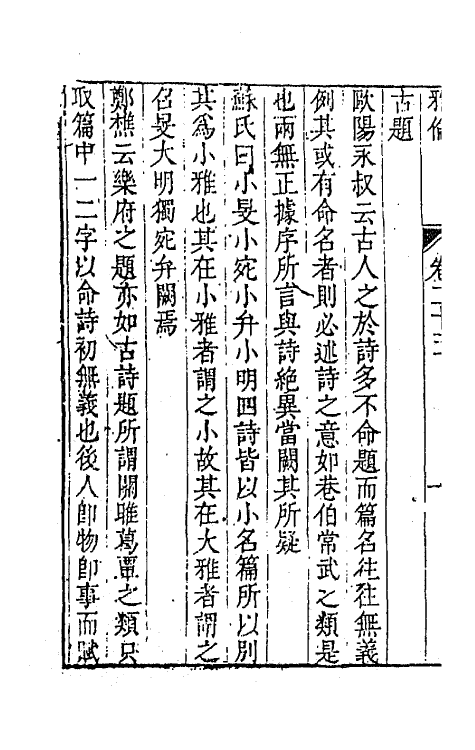 雅倫 卷二十三 一
古題
歐陽永叔云古人之於詩多不命題而篇名往往無義
例其或有命名者則必述詩之意如巷伯常武之類是
也雨無正據序所言與詩絕異當闕其所疑
蘇氏曰小旻小宛小弁小明四詩皆以小名篇所以別
其爲小雅也其在小雅者謂之小故其在大雅者謂之
召旻大明獨宛弁闕焉
鄭樵云樂府之題亦如古詩題所謂關雎葛覃之類只
取篇中一二字以命詩初無義也後人卽物卽事而賦